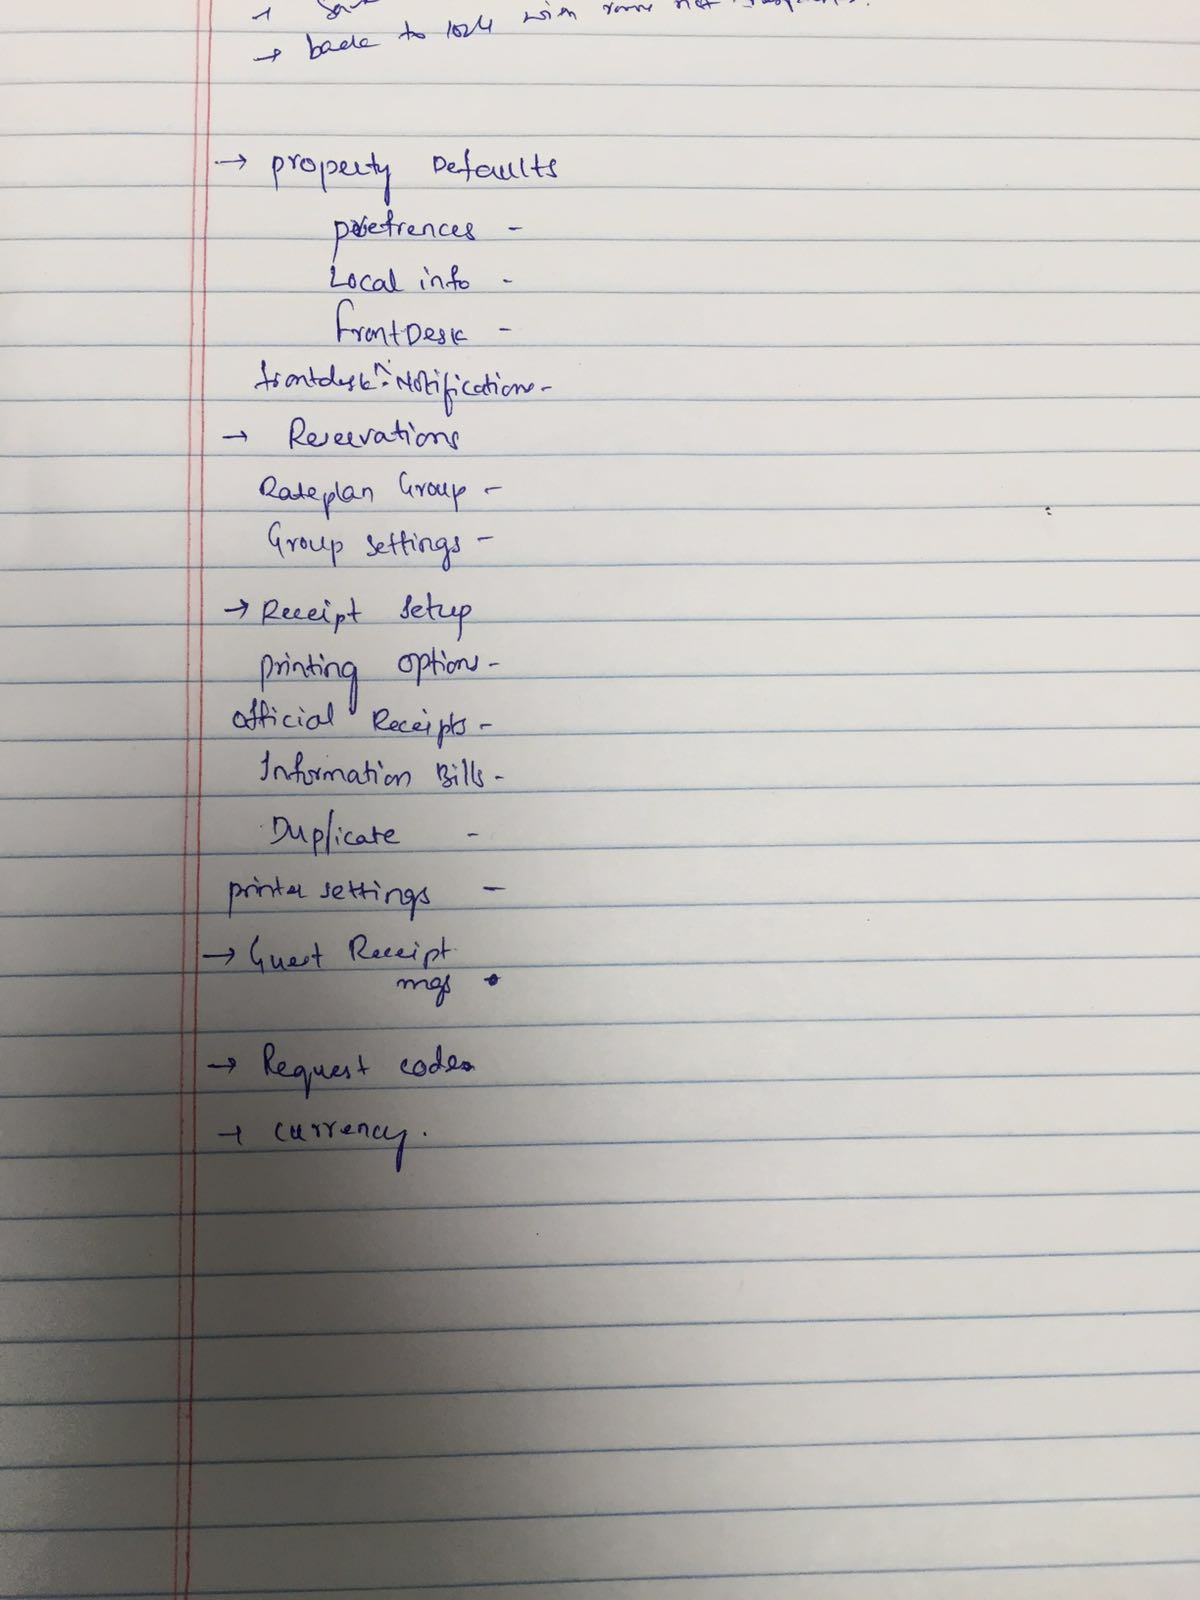 → back to 1024 with
→ property Defaults
prefrences -
Local info -
FrontDesk -
frontdesk Notifications -
→ Reservations
Rateplan Group -
Group settings -
→ Receipt setup
printing options -
official Receipts -
Information Bills -
Duplicate -
printer settings -
→ Guest Receipt
mgs
→ Request codes
→ currency.